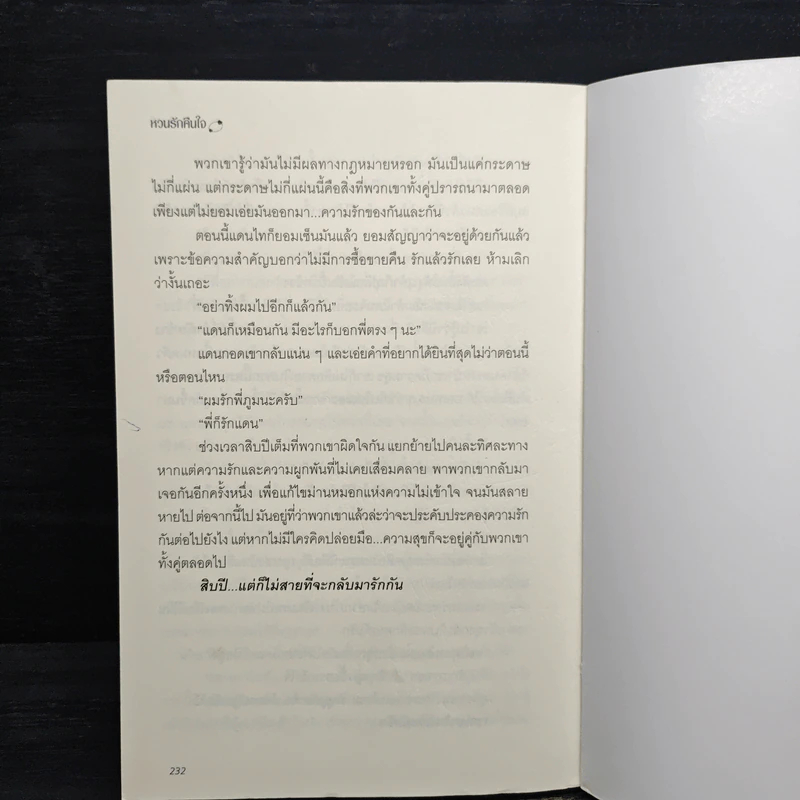 หวนรักคืนใจ
พวกเขารู้ว่ามันไม่มีผลทางกฎหมายหรอก มันเป็นแค่กระดาษ
ไม่กี่แผ่น แต่กระดาษไม่กี่แผ่นนี้คือสิ่งที่พวกเขาทั้งคู่ปรารถนามาตลอด
เพียงแต่ไม่ยอมเอ่ยมันออกมา...ความรักของกันและกัน
ตอนนี้แดนไทก็ยอมเซ็นมันแล้ว ยอมสัญญาว่าจะอยู่ด้วยกันแล้ว
เพราะข้อความสำคัญบอกว่าไม่มีการซื้อขายคืน รักแล้วรักเลย ห้ามเลิก
ว่างั้นเถอะ
“อย่าทิ้งผมไปอีกก็แล้วกัน”
“แดนก็เหมือนกัน มีอะไรก็บอกพี่ตรง ๆ นะ”
แดนกอดเขากลับแน่น ๆ และเอ่ยคำที่อยากได้ยินที่สุดไม่ว่าตอนนี้
หรือตอนไหน
“ผมรักพี่ภูมนะครับ”
“พี่ก็รักแดน”
ช่วงเวลาสิบปีเต็มที่พวกเขาผิดใจกัน แยกย้ายไปคนละทิศละทาง
หากแต่ความรักและความผูกพันที่ไม่เคยเสื่อมคลาย พาพวกเขากลับมา
เจอกันอีกครั้งหนึ่ง เพื่อแก้ไขม่านหมอกแห่งความไม่เข้าใจ จนมันสลาย
หายไป ต่อจากนี้ไป มันอยู่ที่ว่าพวกเขาแล้วล่ะว่าจะประคับประคองความรัก
กันต่อไปยังไง แต่หากไม่มีใครคิดปล่อยมือ...ความสุขก็จะอยู่คู่กับพวกเขา
ทั้งคู่ตลอดไป
สิบปี...แต่ก็ไม่สายที่จะกลับมารักกัน
232